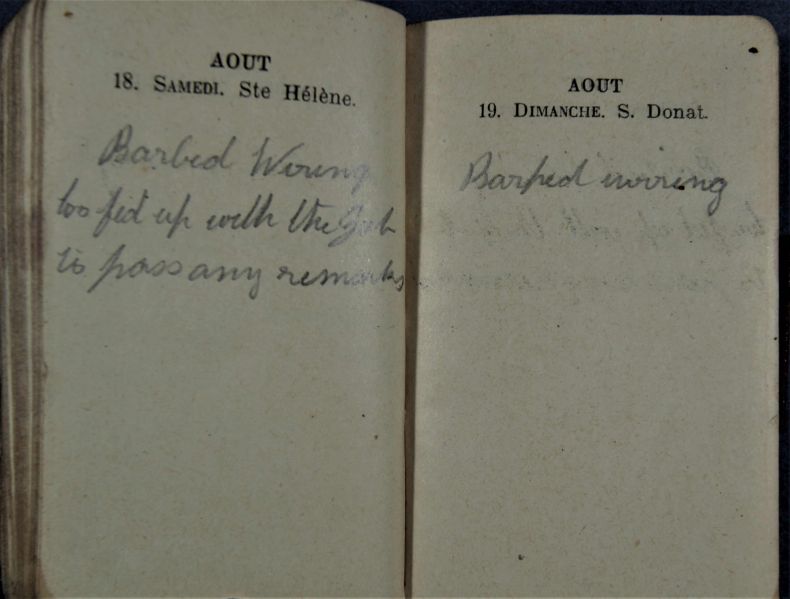 AOUT
18. SAMEDI. Ste Hélène.
Barbed Wiring
too fed up with the Job
to pass any remarks
AOUT
19. DIMANCHE. S. Donat.
Barbed wiring